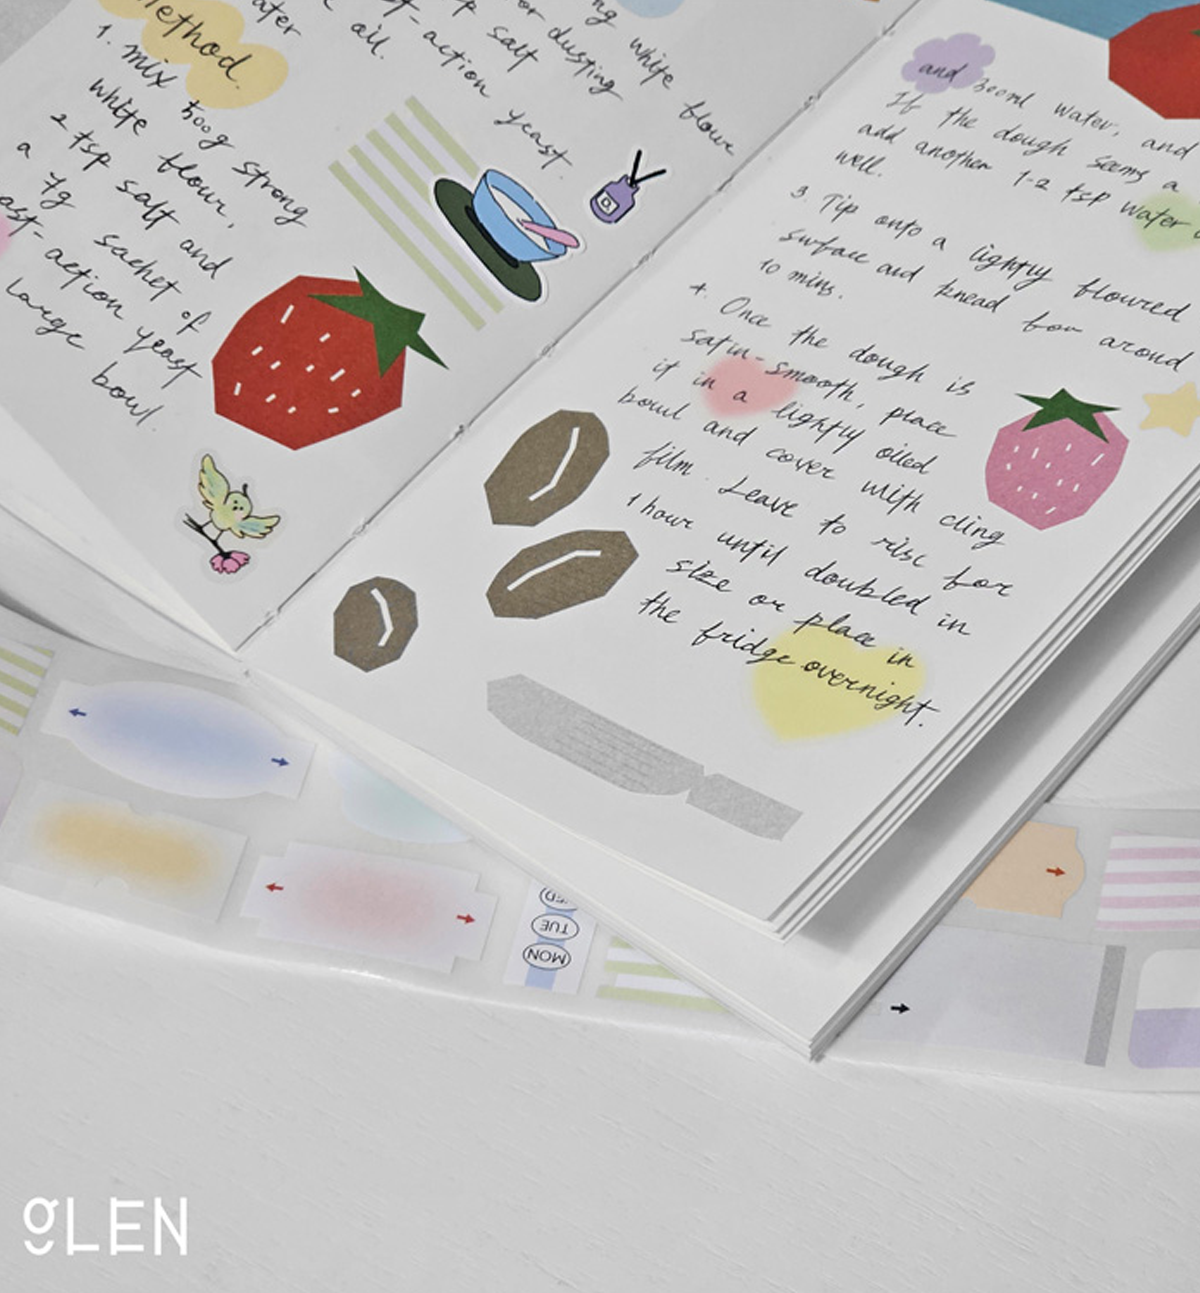 Method.
1. mix 500g strong
white flour,
2 tsp salt and
a 7g sachet of
ast-action yeast
large
bowl.
ng white
or dusting
flour
salt
t-action yeast.
oil.
ater
and 300ml water, and
If the dough seems a
add another 1-2 tsp water
well.
3. Tip onto a lightly floured
surface and knead for around
10 mins.
4. Once the dough is
satin-smooth, place
it in a lightly oiled
bowl and cover with cling
film. Leave to rise for
1 hour until doubled in
size or place in
the fridge overnight.
TUE
MON
gLEN